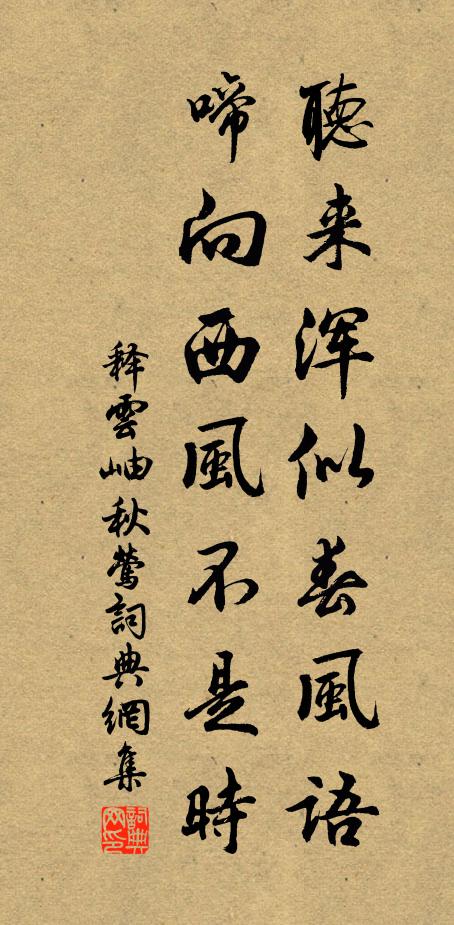 聽来浑似春風語
啼向西風不是時
释雲岫秋鶯詞典網集
詞典网印